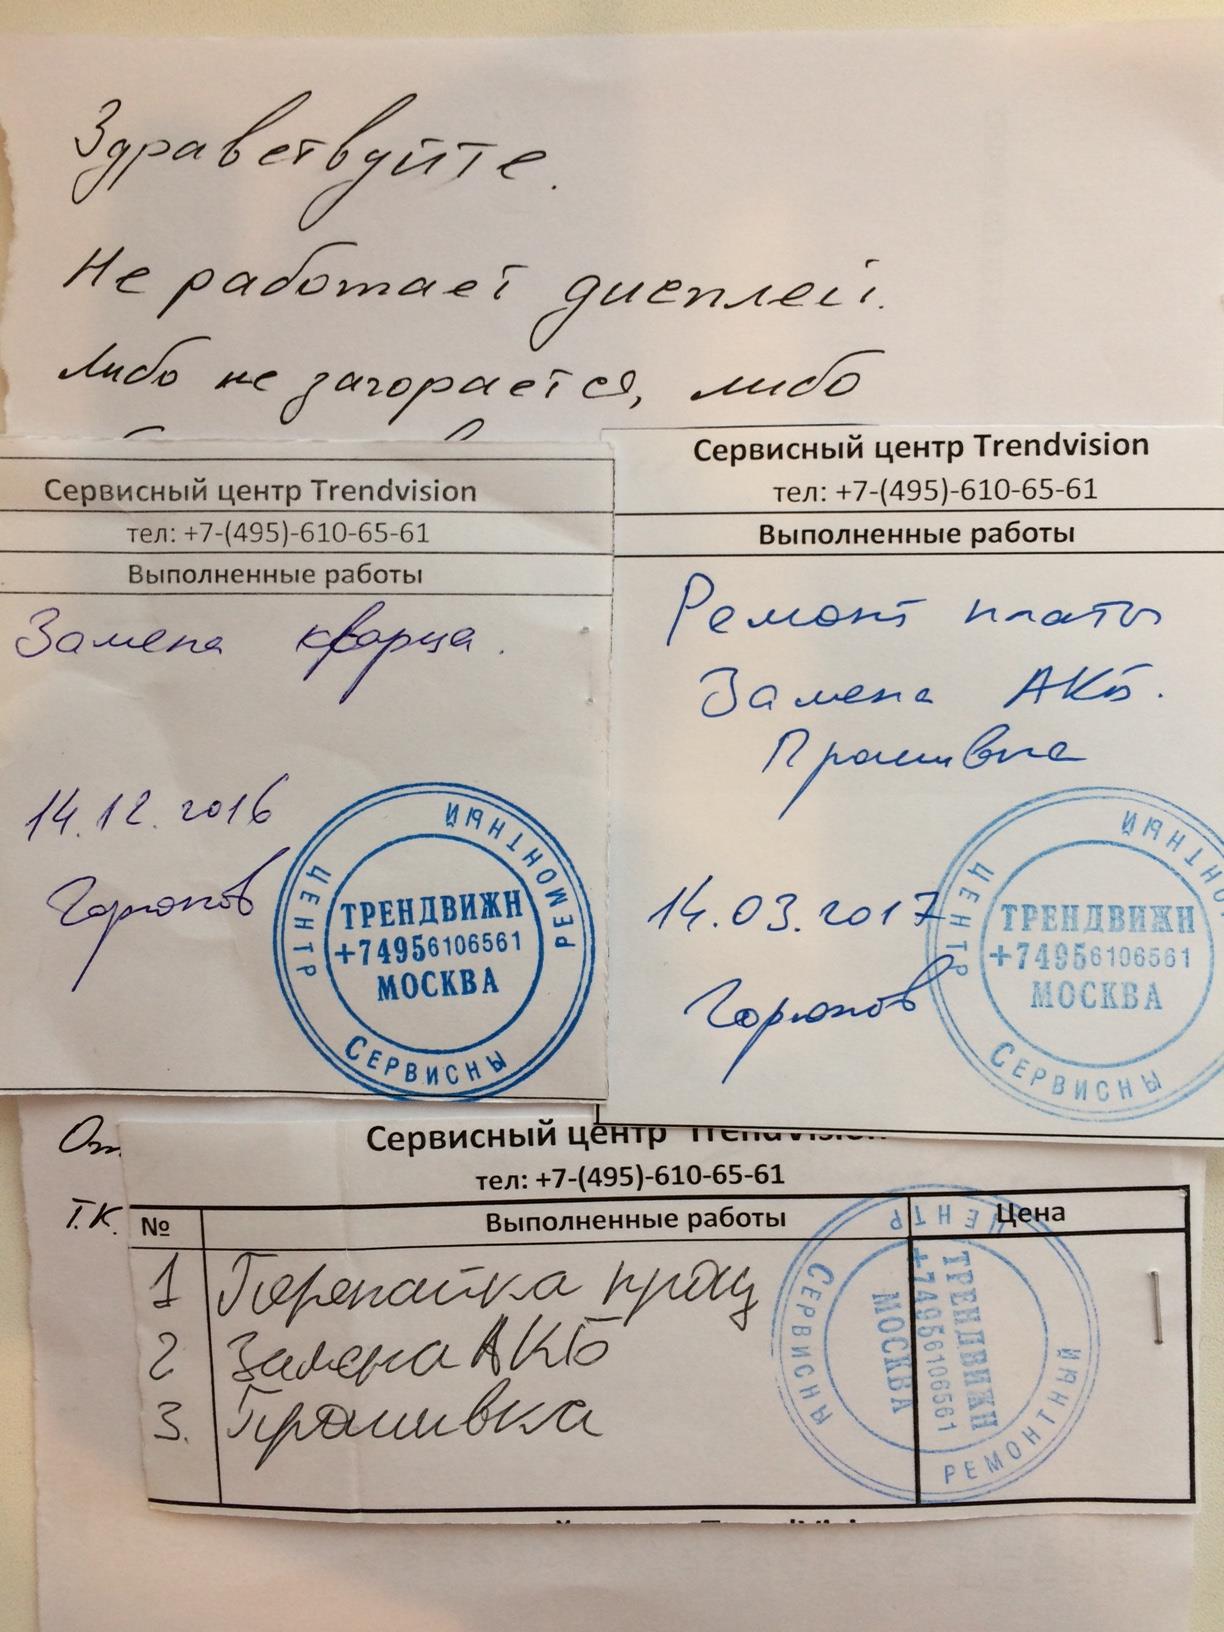 Здравствуйте.
Не работает дисплей.
Либо не загорается, либо
Сервисный центр Trendvision
тел: +7-(495)-610-65-61
Выполненные работы
Замена кварца.
14.12.2016
Горюнов
ТРЕНДВИЖН
+74956106561
МОСКВА
СЕРВИСНЫ РЕМОНТНЫЙ ЦЕНТР
Сервисный центр Trendvision
тел: +7-(495)-610-65-61
Выполненные работы
Ремонт платы
Замена АКБ.
Прошивка
14.03.2017
Горюнов
ТРЕНДВИЖН
+74956106561
МОСКВА
СЕРВИСНЫ РЕМОНТНЫЙ ЦЕНТР
Т.К.
Сервисный центр Trendvision
тел: +7-(495)-610-65-61
№ Выполненные работы Цена
1 Перепайка проц
2 Замена АКБ
3. Прошивка
ТРЕНДВИЖН
+74956106561
МОСКВА
СЕРВИСНЫ РЕМОНТНЫЙ ЦЕНТР